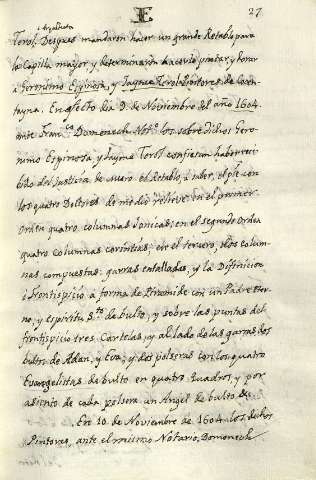 E
27
i Arquitecto
Terol. Despues mandaron hacer un grande Retablo para
la Capilla mayor, y determinaron hacerlo pintar, y dorar
a Geronimo Espinosa, y Jayme Terol Pintores de Cocen-
tayna. En efecto dia 9. de Noviembre del año 1604.
ante Fran.co Domenech Not.o los sobredichos Gero-
nimo Espinosa y Jayme Terol confiesan haber reci-
bido del Justicia de Muro el Retablo, a saber, el pie con
los quatro Dotores de medio relieve: en el primer
orden quatro columnas Jonicas; en el segundo orden
quatro columnas corintias; en el tercero, dos colum-
nas compuestas: garras entalladas, y la Difinicion
i frontispicio a forma de Piramide con un Padre Eter-
no, y Espiritu S.to de bulto; y sobre las puntas del
frontispicio tres Cartelas; y al lado de las garras dos
bultos de Adan, y Eva; y dos polseras con los quatro
Evangelistas de bulto en quatro quadros, y por
asiento de cada polsera un Angel de bulto &.
En 10. de Noviembre de 1604. los dichos
Pintores, ante el mismo Notario Domenech